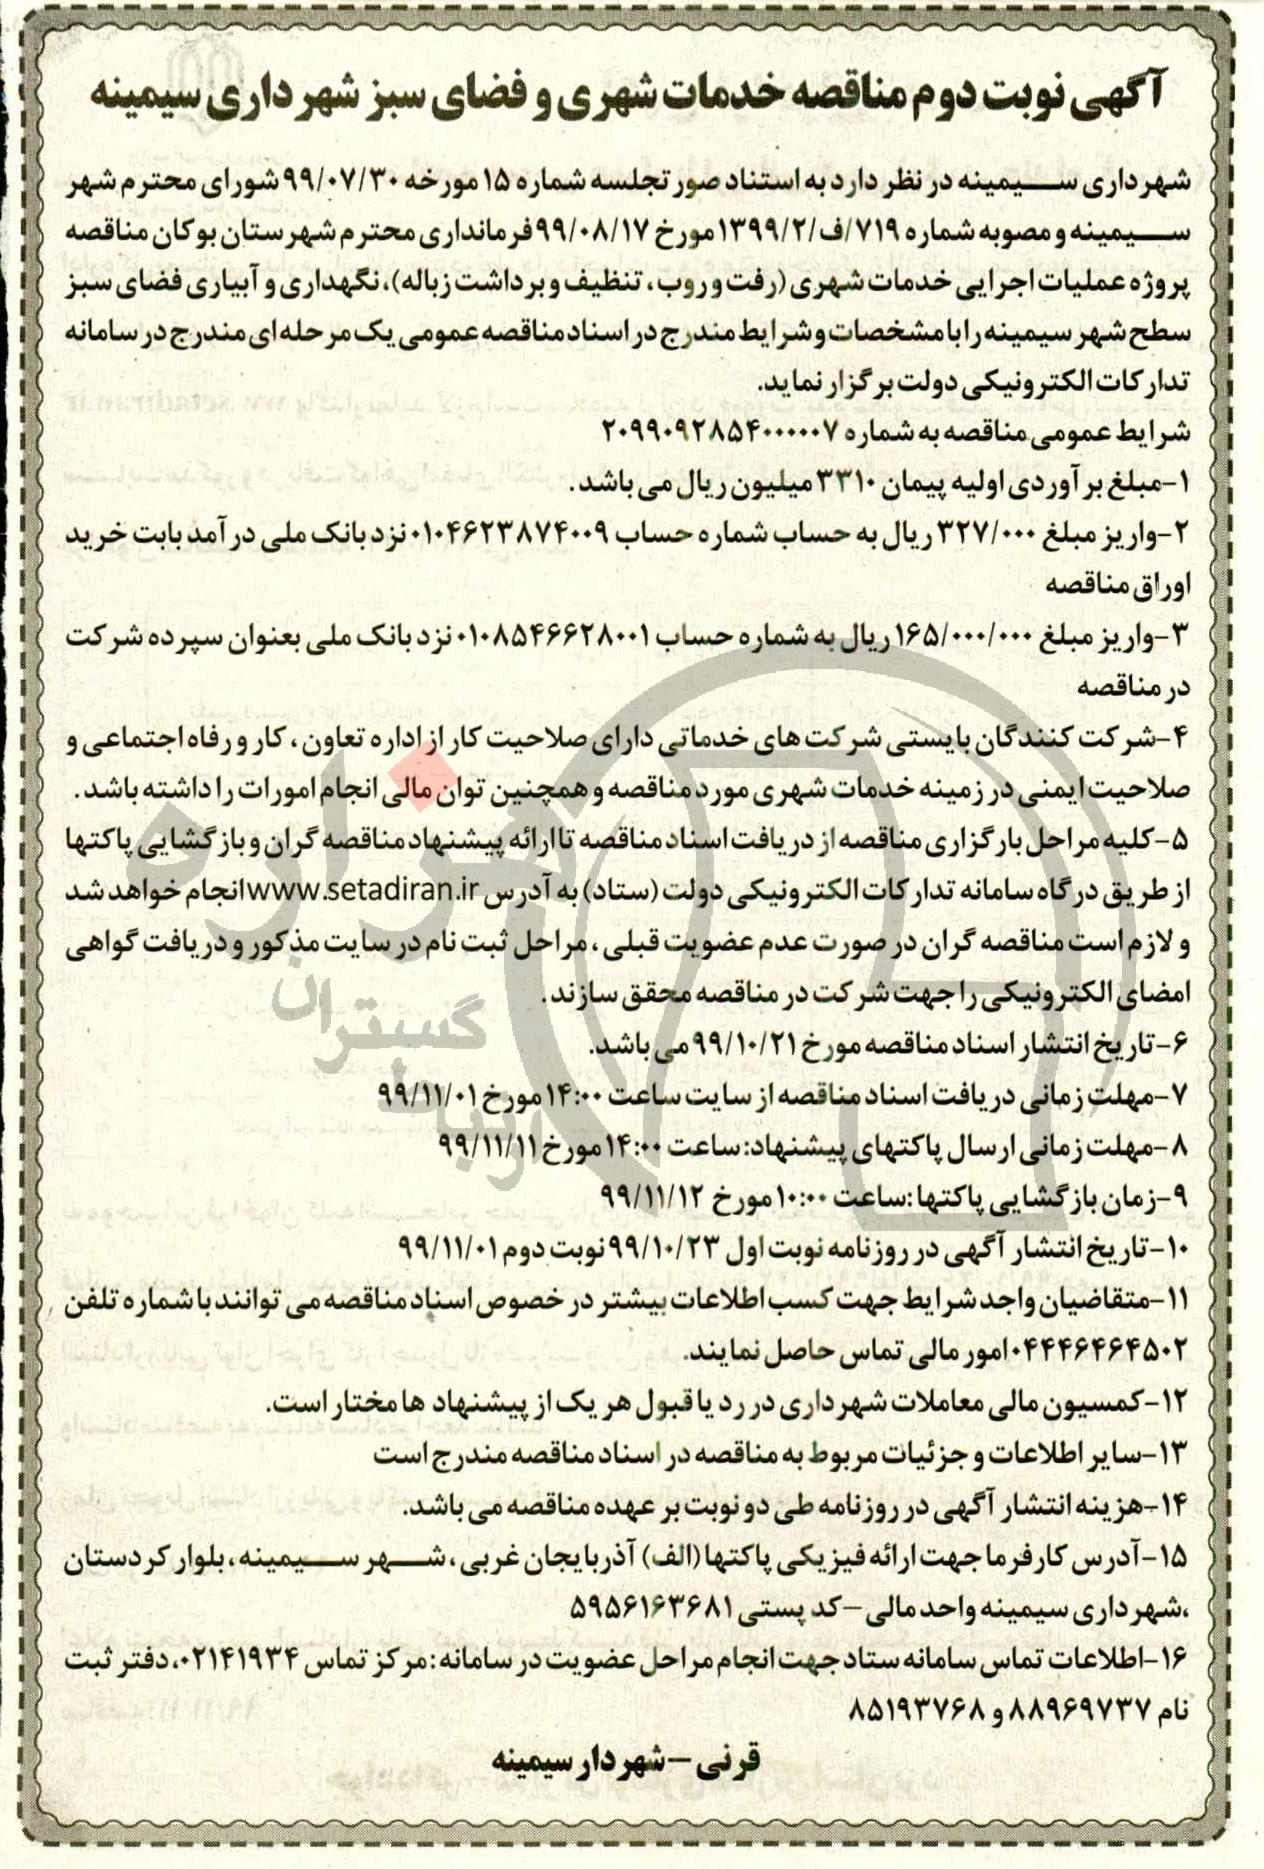 آگهی نوبت دوم مناقصه خدمات شهری و فضای سبز شهرداری سیمینه
شهرداری سیمینه در نظر دارد به استناد صورتجلسه شماره ۱۵ مورخه ۹۹/۰۷/۳۰ شورای محترم شهر
سیمینه و مصوبه شماره ۷۱۹/ف/۱۳۹۹/۲ مورخ ۹۹/۰۸/۱۷ فرمانداری محترم شهرستان بوکان مناقصه
پروژه عملیات اجرایی خدمات شهری (رفت و روب، تنظیف و برداشت زباله)، نگهداری و آبیاری فضای سبز
سطح شهر سیمینه را با مشخصات و شرایط مندرج در اسناد مناقصه عمومی یک مرحله ای مندرج در سامانه
تدارکات الکترونیکی دولت برگزار نماید.
شرایط عمومی مناقصه به شماره ۲۰۹۹۰۹۲۸۵۴۰۰۰۰۰۷
۱-مبلغ برآوردی اولیه پیمان ۳۳۱۰ میلیون ریال می باشد.
۲-واریز مبلغ ۳۲۷/۰۰۰ ریال به حساب شماره حساب ۰۱۰۴۶۲۳۸۷۴۰۰۹ نزد بانک ملی درآمد بابت خرید
اوراق مناقصه
۳-واریز مبلغ ۱۶۵/۰۰۰/۰۰۰ ریال به شماره حساب ۰۱۰۸۵۴۶۶۲۸۰۰۱ نزد بانک ملی بعنوان سپرده شرکت
در مناقصه
۴-شرکت کنندگان بایستی شرکت های خدماتی دارای صلاحیت کار از اداره تعاون، کار و رفاه اجتماعی و
صلاحیت ایمنی در زمینه خدمات شهری مورد مناقصه و همچنین توان مالی انجام امورات را داشته باشد.
۵-کلیه مراحل بارگزاری مناقصه از دریافت اسناد مناقصه تا ارائه پیشنهاد مناقصه گران و بازگشایی پاکتها
از طریق درگاه سامانه تدارکات الکترونیکی دولت (ستاد) به آدرس www.setadiran.ir انجام خواهد شد
و لازم است مناقصه گران در صورت عدم عضویت قبلی، مراحل ثبت نام در سایت مذکور و دریافت گواهی
امضای الکترونیکی را جهت شرکت در مناقصه محقق سازند.
۶-تاریخ انتشار اسناد مناقصه مورخ ۹۹/۱۰/۲۱ می باشد.
۷-مهلت زمانی دریافت اسناد مناقصه از سایت ساعت ۱۴:۰۰ مورخ ۹۹/۱۱/۰۱
۸-مهلت زمانی ارسال پاکتهای پیشنهاد: ساعت ۱۴:۰۰ مورخ ۹۹/۱۱/۱۱
۹-زمان بازگشایی پاکتها: ساعت ۱۰:۰۰ مورخ ۹۹/۱۱/۱۲
۱۰-تاریخ انتشار آگهی در روزنامه نوبت اول ۹۹/۱۰/۲۳ نوبت دوم ۹۹/۱۱/۰۱
۱۱-متقاضیان واجد شرایط جهت کسب اطلاعات بیشتر در خصوص اسناد مناقصه می توانند با شماره تلفن
۰۴۴۴۶۴۶۴۵۰۲ امور مالی تماس حاصل نمایند.
۱۲-کمسیون مالی معاملات شهرداری در رد یا قبول هر یک از پیشنهاد ها مختار است.
۱۳-سایر اطلاعات و جزئیات مربوط به مناقصه در اسناد مناقصه مندرج است
۱۴-هزینه انتشار آگهی در روزنامه طی دو نوبت بر عهده مناقصه می باشد.
۱۵-آدرس کارفرما جهت ارائه فیزیکی پاکتها (الف) آذربایجان غربی، شهر سیمینه، بلوار کردستان
،شهرداری سیمینه واحد مالی -کد پستی ۵۹۵۶۱۶۳۶۸۱
۱۶-اطلاعات تماس سامانه ستاد جهت انجام مراحل عضویت در سامانه: مرکز تماس ۰۲۱۴۱۹۳۴، دفتر ثبت
نام ۸۸۹۶۹۷۳۷ و ۸۵۱۹۳۷۶۸
قرنی – شهردار سیمینه